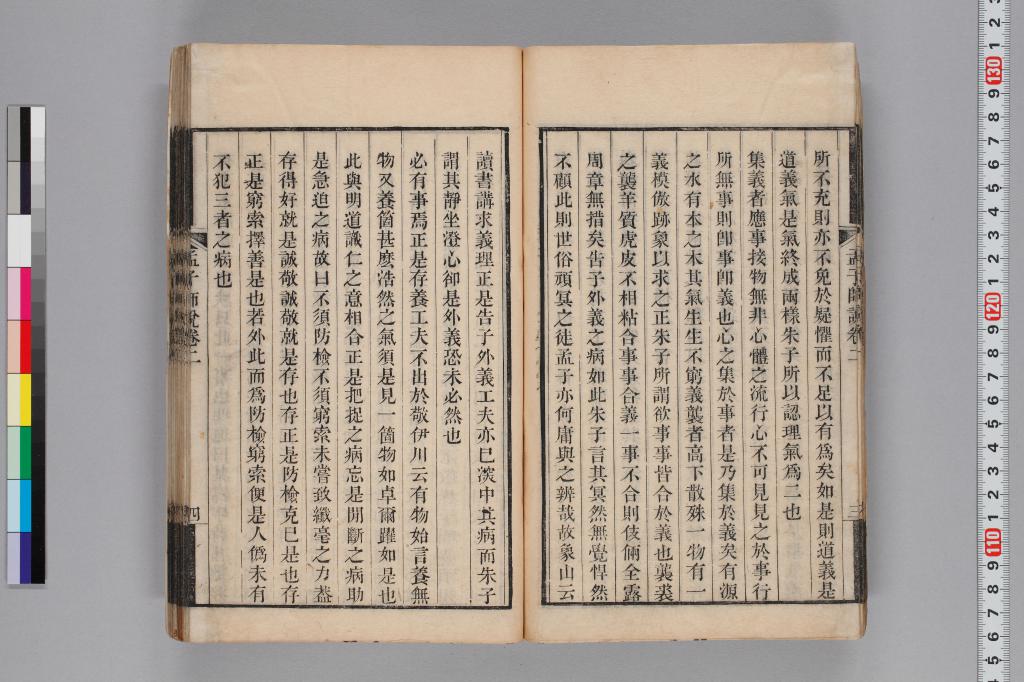 所不充則亦不免於疑懼而不足以有爲矣如是則道義是
道義氣是氣終成兩樣朱子所以認理氣爲二也
集義者應事接物無非心體之流行心不可見見之於事行
所無事則卽事卽義也心之集於事者是乃集於義矣有源
之水有本之木其氣生生不窮義襲者高下散殊一物有一
義模倣跡象以求之正朱子所謂欲事事皆合於義也襲裘
之襲羊質虎皮不相粘合事事合義一事不合則伎倆全露
周章無措矣告子外義之病如此朱子言其冥然無覺悍然
不顧此則世俗頑冥之徒孟子亦何庸與之辨哉故象山云
孟子師說卷二
三
讀書講求義理正是告子外義工夫亦已深中其病而朱子
謂其靜坐澄心卻是外義恐未必然也
必有事焉正是存養工夫不出於敬伊川云有物始言養無
物又養箇甚麽浩然之氣須是見一箇物如卓爾躍如是也
此與明道識仁之意相合正是把捉之病忘是閒斷之病助
是急迫之病故曰不須防檢不須窮索未嘗致纖毫之力蓋
存得好就是誠敬誠敬就是存也存正是防檢克已是也存
正是窮索擇善是也若外此而爲防檢窮索便是人僞未有
不犯三者之病也
孟子師說卷二
四